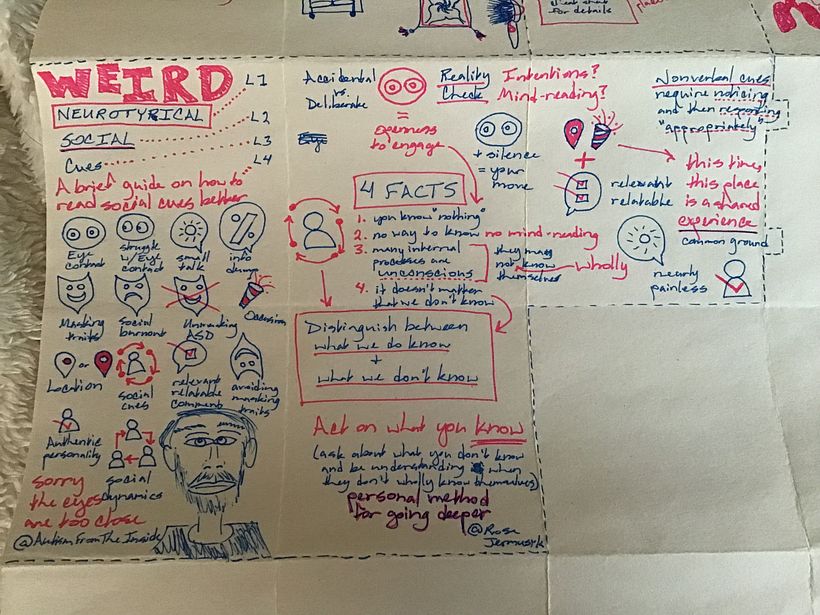 for details
WEIRD
L1
NEUROTYPICAL
L2
SOCIAL
L3
Cues
L4
A brief guide on how to
read social cues better
Eye
contact
struggle
w/Eye
contact
small
talk
info
dump
Masking
traits
social
burnout
Unmasking
ASD
Occasion
Location
or
social
cues
relevant
relatable
comment
avoiding
masking
traits
Authentic
personality
social
dynamics
sorry
the eyes
are too close
@AutismFromTheInside
Accidental
vs.
Deliberate
=
openness
to engage
Reality
Check
Intentions?
Mind-reading?
+ silence
= your
move
4 FACTS
1. you know "nothing"
2. no way to know no mind-reading
3. many internal
processes are
unconscious
they may
not know
themselves
wholly
4. it doesn't matter
that we don't know
Distinguish between
what we do know
+
what we don't know
Act on what you know
(ask about what you don't know
and be understanding when
they don't wholly know themselves)
personal method
for going deeper
@Rosa
Nonverbal cues
require noticing
and then responding
"appropriately"
+
relevant
relatable
this time,
this place
is a shared
experience
common ground
nearly
painless